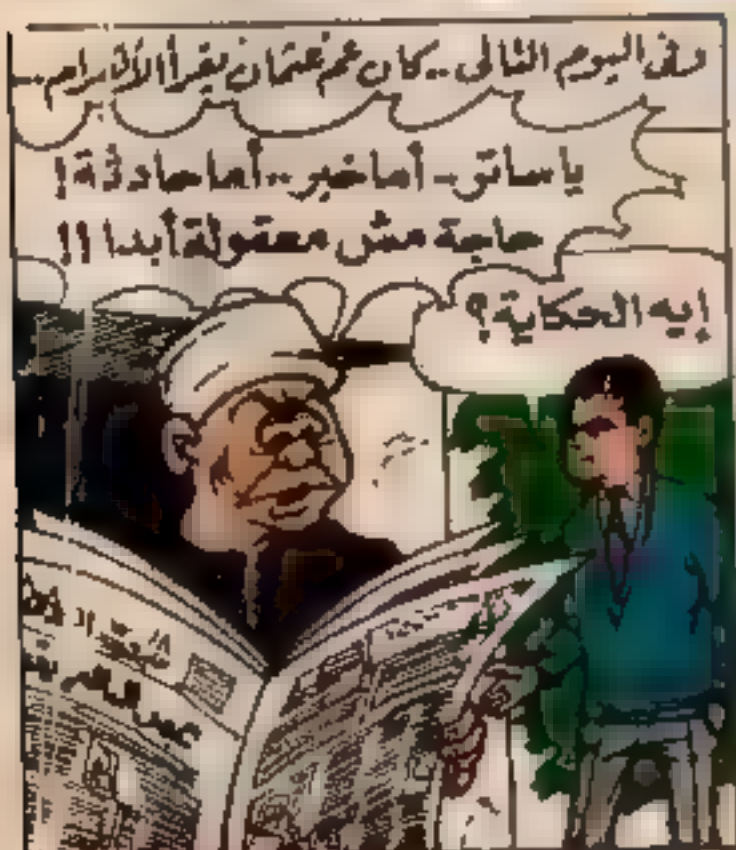 وفى اليوم التالى .. كان عم عثمان يقرأ الأهرام ..
يا ساتر .. أما خبر .. أما حادثة !
حاجة مش معقولة أبدا !!
إيه الحكاية ؟